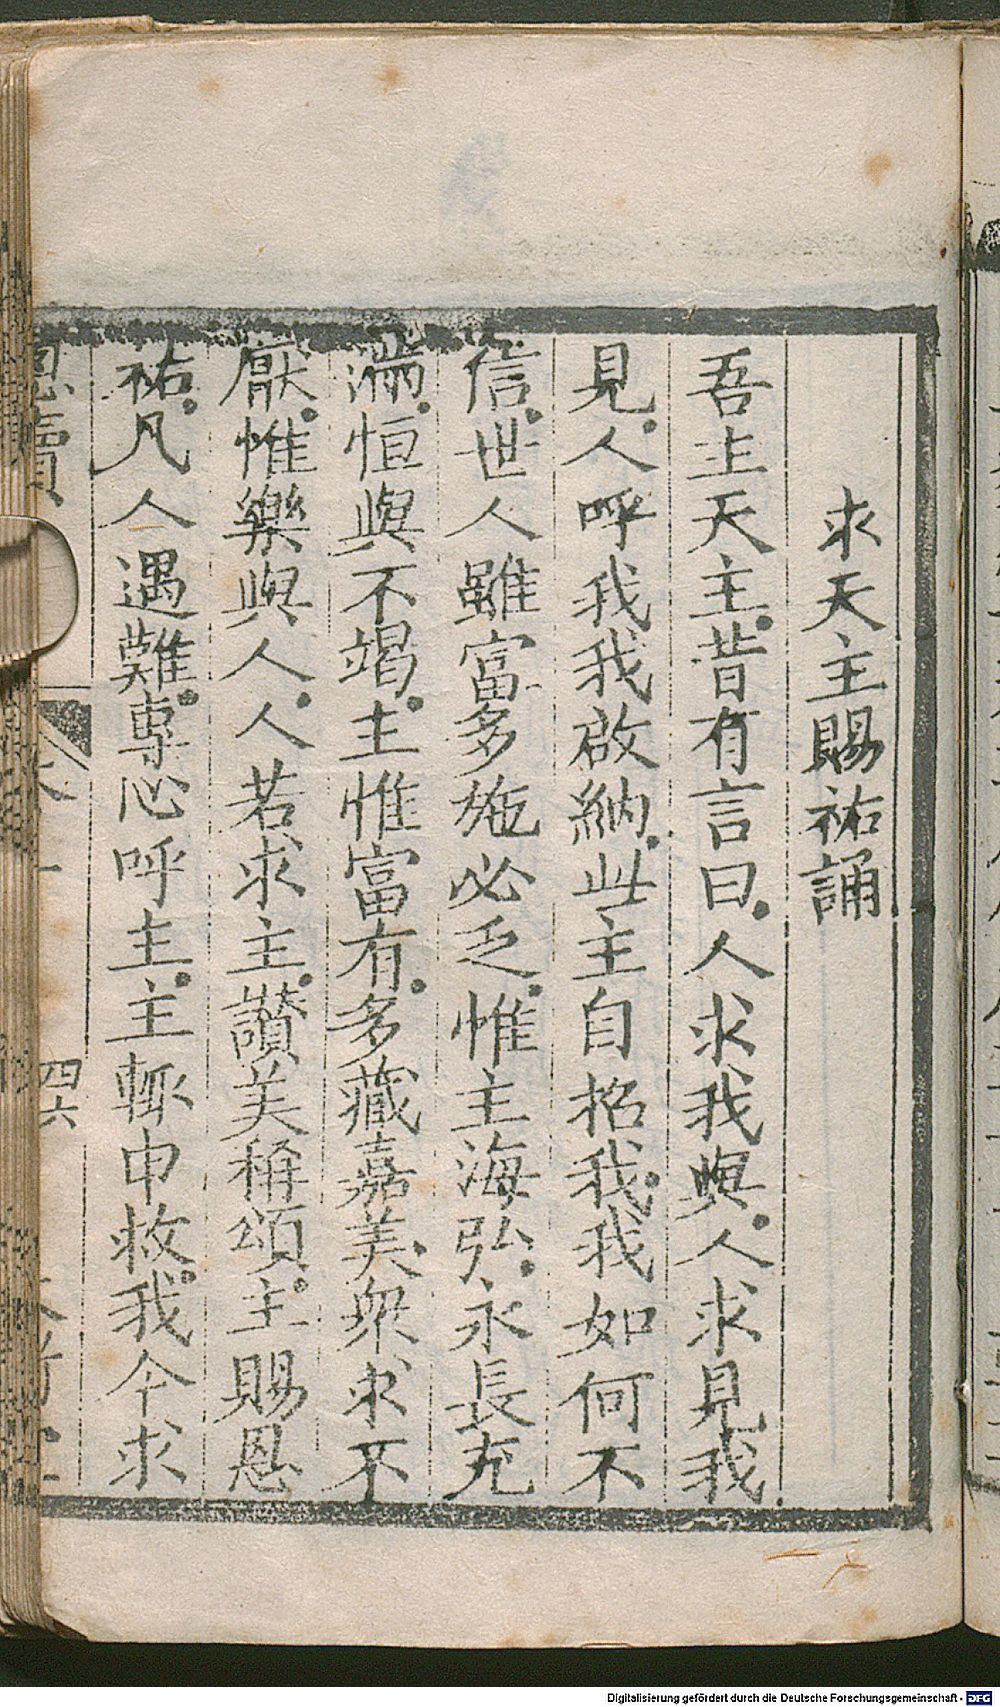 求天主賜祐誦
吾主天主.昔有言曰.人求我與.人求見我.
見.人呼我我啟納.此主自招我.我如何不
信.世人雖富多施必乏.惟主海弘.永長充
滿.恒與不竭.主惟富有.多藏嘉美.衆求不
厭.惟樂與人.人若求主.讃美稱頌.主賜恩
祐.凡人遇難.專心呼主.主輒申救.我今求
四六
Digitalisierung gefördert durch die Deutsche Forschungsgemeinschaft - DFG